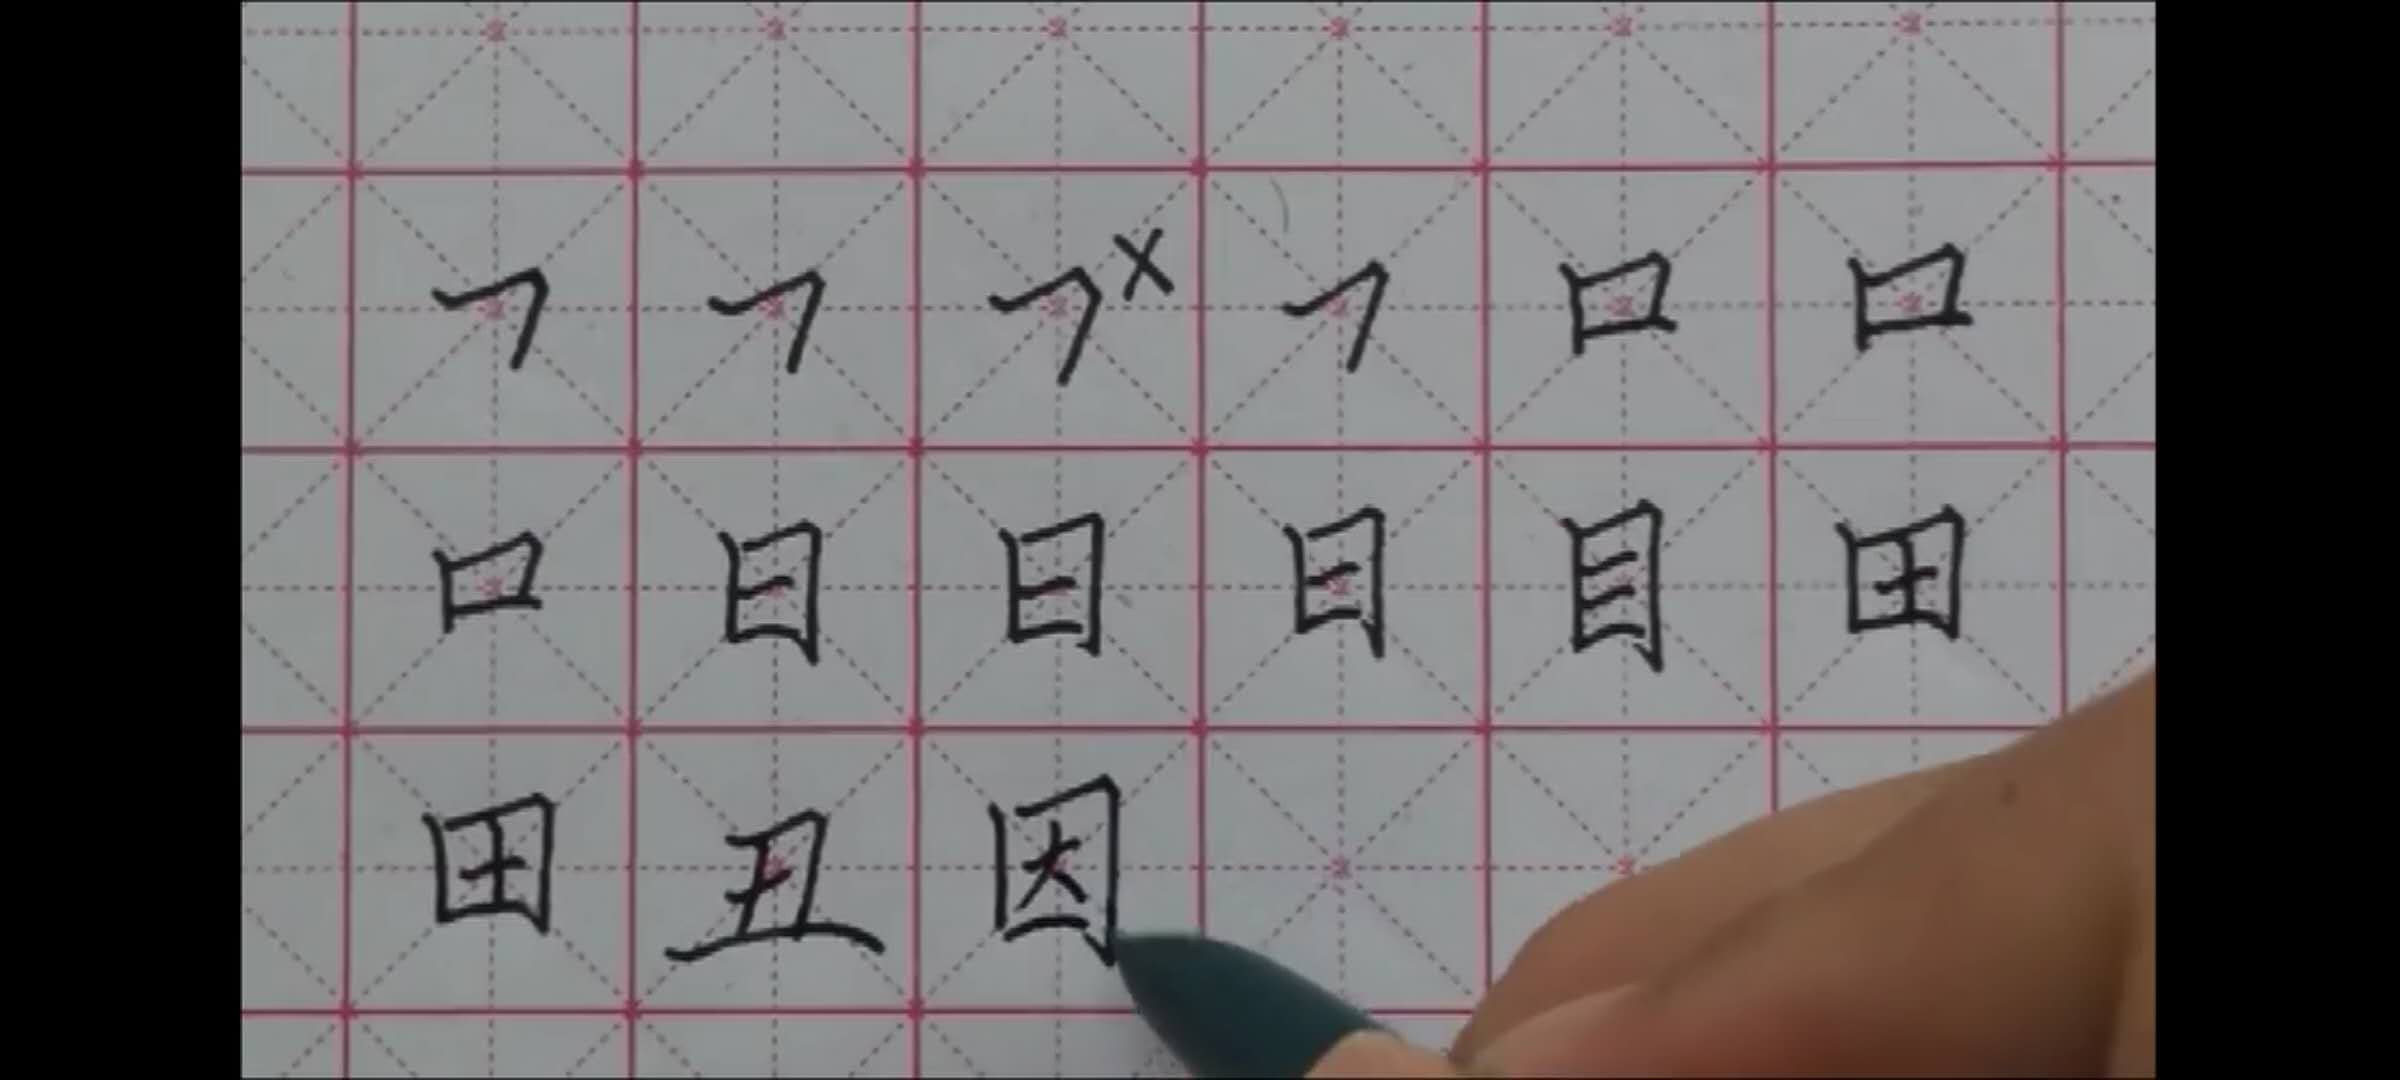 ㇕ ㇕ ㇕ × ㇕ 口 口
口 日 日 日 目 田
田 丑 因